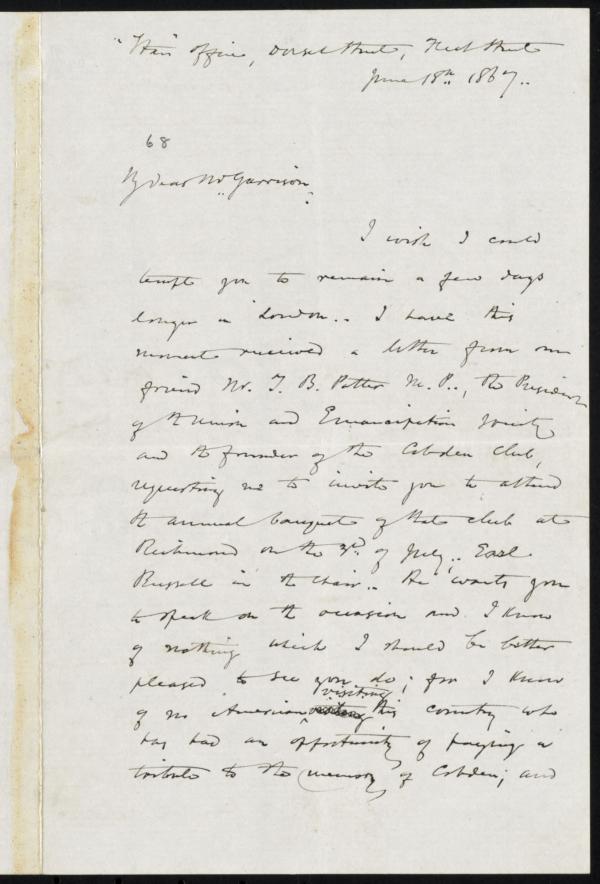 "Star" office, Dorset Street, Fleet Street
June 18th 1867.
68
My dear Mr Garrison,
I wish I could
tempt you to remain a few days
longer in London.. I have this
moment received a letter from our
friend Mr. T. B. Potter M. P., the President
of the Union and Emancipation Society
and the founder of the Cobden Club,
requesting me to invite you to attend
the annual banquet of that club at
Richmond on the 3d. of July, Earl
Russell in the chair.. He wants you
to speak on the occasion and I know
of nothing which I should be better
pleased to see you do; for I know
visiting
of no American this country who
has had an opportunity of paying a
tribute to the memory of Cobden; and